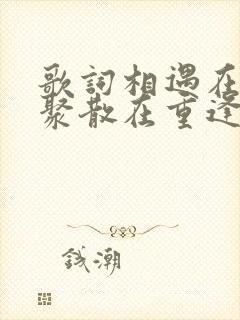 歌詞相遇在
聚散在重逢
錢潮